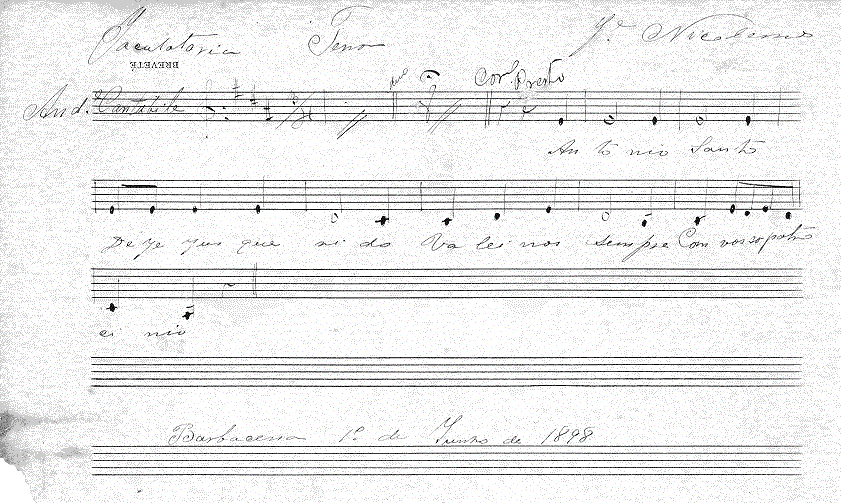 Jaculatoria Tenor Je. Nicodemos
BREVETÉ
And.e Cantabile And.e Corl. Presto
An to nio Santo
De Je zus que ri do Va lei nos sempre Com vosso patro
ci nio
Barbacena 1º de Junho de 1898